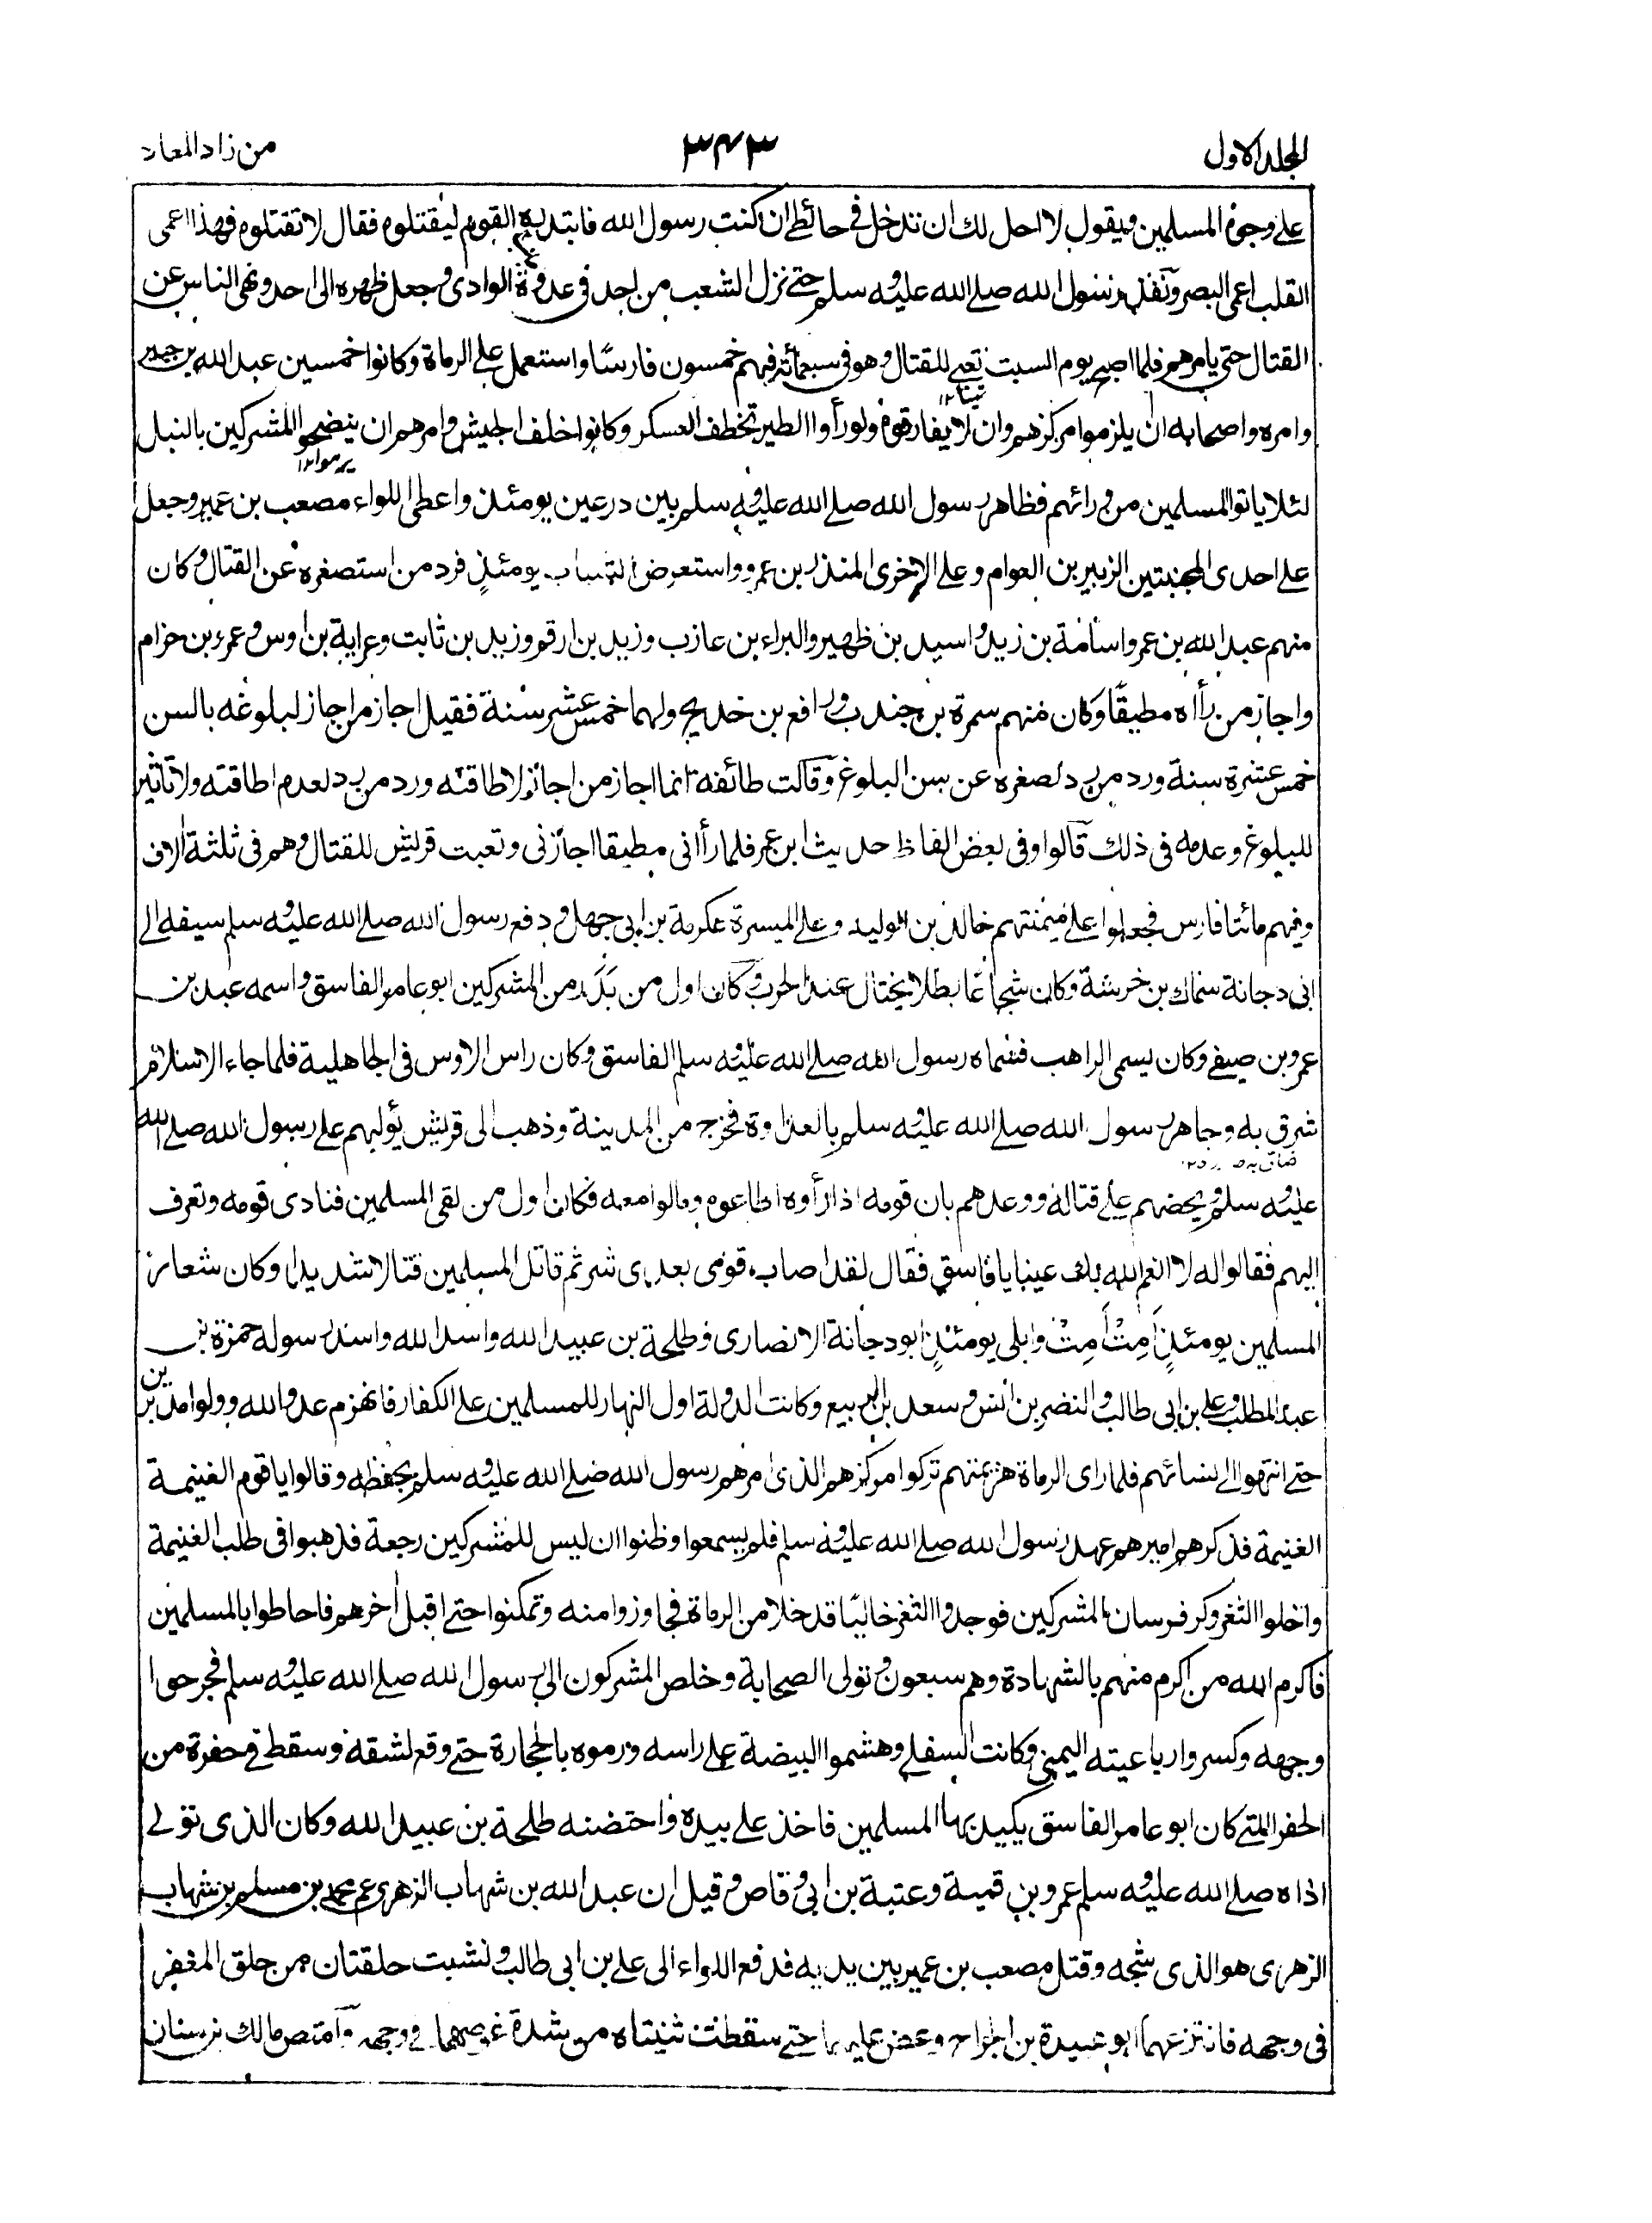 المجلد الاول
٣٤٣
من زاد المعاد
على وجوه المسلمين ويقول لا احل لك ان تدخل فى حائطى ان كنت رسول الله فابتدره القوم ليقتلوه فقال لا تقتلوه فهذا اعمى
القلب اعمى البصر ونفذ رسول الله صلے الله عليه وسلم حتے نزل الشعب من احد فى عدوة الوادى وجعل ظهره الى احد ونهى الناس عن
القتال حتى يامرهم فلما اصبح يوم السبت تعبے للقتال وهو فى سبعمائة فيهم خمسون فارسًا واستعمل علے الرماة وكانوا خمسين عبد الله بن جبير
تهيأ ١٢
وامره واصحابه ان يلزموا مركزهم وان لا يفارقوه ولو رأوا الطير تخطف العسكر وكانوا خلف الجيش وامرهم ان ينضحوا المشركين بالنبل
يرموا ١٢
لئلا ياتوا المسلمين من ورائهم فظاهر رسول الله صلے الله عليه وسلم بين درعين يومئذ واعطى اللواء مصعب بن عمير وجعل
علے احدى المجنبتين الزبير بن العوام وعلے الاخرى المنذر بن عمرو واستعرض الشباب يومئذٍ فرد من استصغره عن القتال وكان
منهم عبد الله بن عمر واسامة بن زيد واسيد بن ظهير والبراء بن عازب وزيد بن ارقم وزيد بن ثابت وعرابة بن اوس وعمرو بن حزام
واجاز من رأاه مطيقًا وكان منهم سمرة بن جندب ورافع بن خديج ولهما خمس عشر سنة فقيل اجاز من اجاز لبلوغه بالسن
خمس عشرة سنة ورد من رد لصغره عن سن البلوغ وقالت طائفة انما اجاز من اجاز لاطاقته ورد من رد لعدم اطاقته ولا تاثير
للبلوغ وعدمه فى ذلك قالوا وفى بعض الفاظ حديث ابن عمر فلما رأانى مطيقا اجازنى وتعبت قريش للقتال وهم فى ثلثة الاف
وفيهم مائتا فارس فجعلوا على ميمنتهم خالد بن الوليد وعلے الميسرة عكرمة بن ابى جهل ودفع رسول الله صلے الله عليه وسلم سيفه الے
ابى دجانة سماك بن خرشة وكان شجاعًا بطلا يختال عند الحرب وكان اول من بَدَر من المشركين ابو عامر الفاسق واسمه عبد بن
عمرو بن صيفے وكان يسمى الراهب فسماه رسول الله صلے الله عليه وسلم الفاسق وكان راس الاوس فى الجاهلية فلما جاء الاسلام
شرق به وجاهر رسول الله صلے الله عليه وسلم بالعداوة فخرج من المدينة وذهب الى قريش يؤلبهم على رسول الله صلے الله
عليه وسلم ويحضهم علے قتاله ووعدهم بان قومه اذا رأوه اطاعوه ومالوا معه فكان اول من لقى المسلمين فنادى قومه وتعرف
اليهم فقالوا له لا انعم الله بك عينا يا فاسق فقال لقد اصاب قومى بعدى شر ثم قاتل المسلمين قتالا شديدا وكان شعار
المسلمين يومئذٍ اَمِتْ اَمِتْ وابلى يومئذٍ ابو دجانة الانصارى وطلحة بن عبيد الله واسد الله واسد رسوله حمزة بن
عبد المطلب وعلے بن ابى طالب والنضر بن انس وسعد بن الربيع وكانت الدولة اول النهار للمسلمين علے الكفار فانهزم عدو الله وولوا مدبرين
حتے انتهوا الے نسائهم فلما راى الرماة هزيمتهم تركوا مركزهم الذى امرهم رسول الله صلے الله عليه وسلم بحفظه وقالوا يا قوم الغنيمة
الغنيمة فذكرهم اميرهم عهد رسول الله صلے الله عليه وسلم فلم يسمعوا وظنوا ان ليس للمشركين رجعة فذهبوا فى طلب الغنيمة
واخلوا الثغر وكر فرسان المشركين فوجدوا الثغر خاليًا قد خلا من الرماة فجاوزوا منه وتمكنوا حتے اقبل اخرهم فاحاطوا بالمسلمين
فاكرم الله من اكرم منهم بالشهادة وهم سبعون وتولى الصحابة وخلص المشركون الى رسول الله صلے الله عليه وسلم فجرحوا
وجهه وكسروا رباعيته اليمنى وكانت السفلے وهشموا البيضة علے راسه ورموه بالحجارة حتے وقع لشقه وسقط فے حفرة من
الحفر التے كان ابو عامر الفاسق يكيد بها المسلمين فاخذ علے بيده واحتضنه طلحة بن عبيد الله وكان الذى تولے
اذاه صلے الله عليه وسلم عمرو بن قمية وعتبة بن ابى وقاص وقيل ان عبد الله بن شهاب الزهرى عم محمد بن مسلم بن شهاب
الزهرى هو الذى شجه وقتل مصعب بن عمير بين يديه فدفع اللواء الى علے بن ابى طالب ونشبت حلقتان من حلق المغفر
فى وجهه فانتزعهما ابو عبيدة بن الجراح وعض عليهما حتے سقطت ثنيتاه من شدة غوصهما فے وجهه وامتص مالك بن سنان